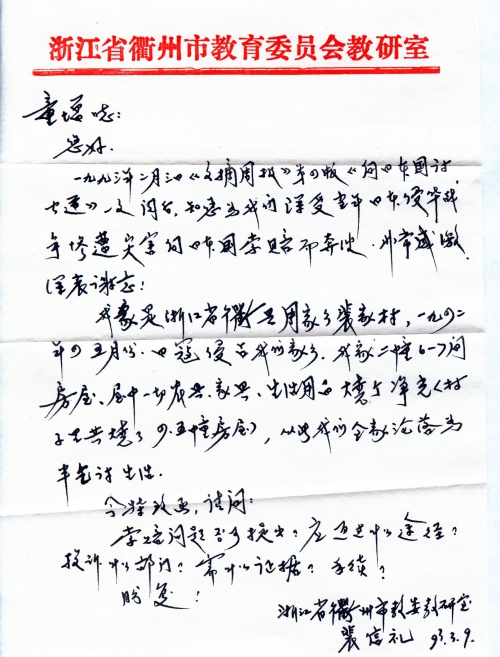 浙江省衢州市教育委员会教研室
童增兄：
您好。
一九九三年二月三日《文摘周报》第四版《向日本国讨
》一文阅后，知您为我们深受当年日本侵华战
争惨遭灾害向日本国索赔而奔波，非常感激，
深表谢意！
我家是浙江省衢县周家乡裴家村，一九四二
年四五月份，日寇侵占我们家乡，我家二幢6-7间
房屋、屋中一切农具、家具、生活用品烧了净光（村
子里共烧了四、五幢房屋），从此我们全家沦落为
半乞讨生活。
今特致函，请问：
索赔问题可提出？应通过什么途径？
投诉什么部门？需什么证据？手续？
盼复！
浙江省衢州市教委教研室
裴信礼 93.3.9.